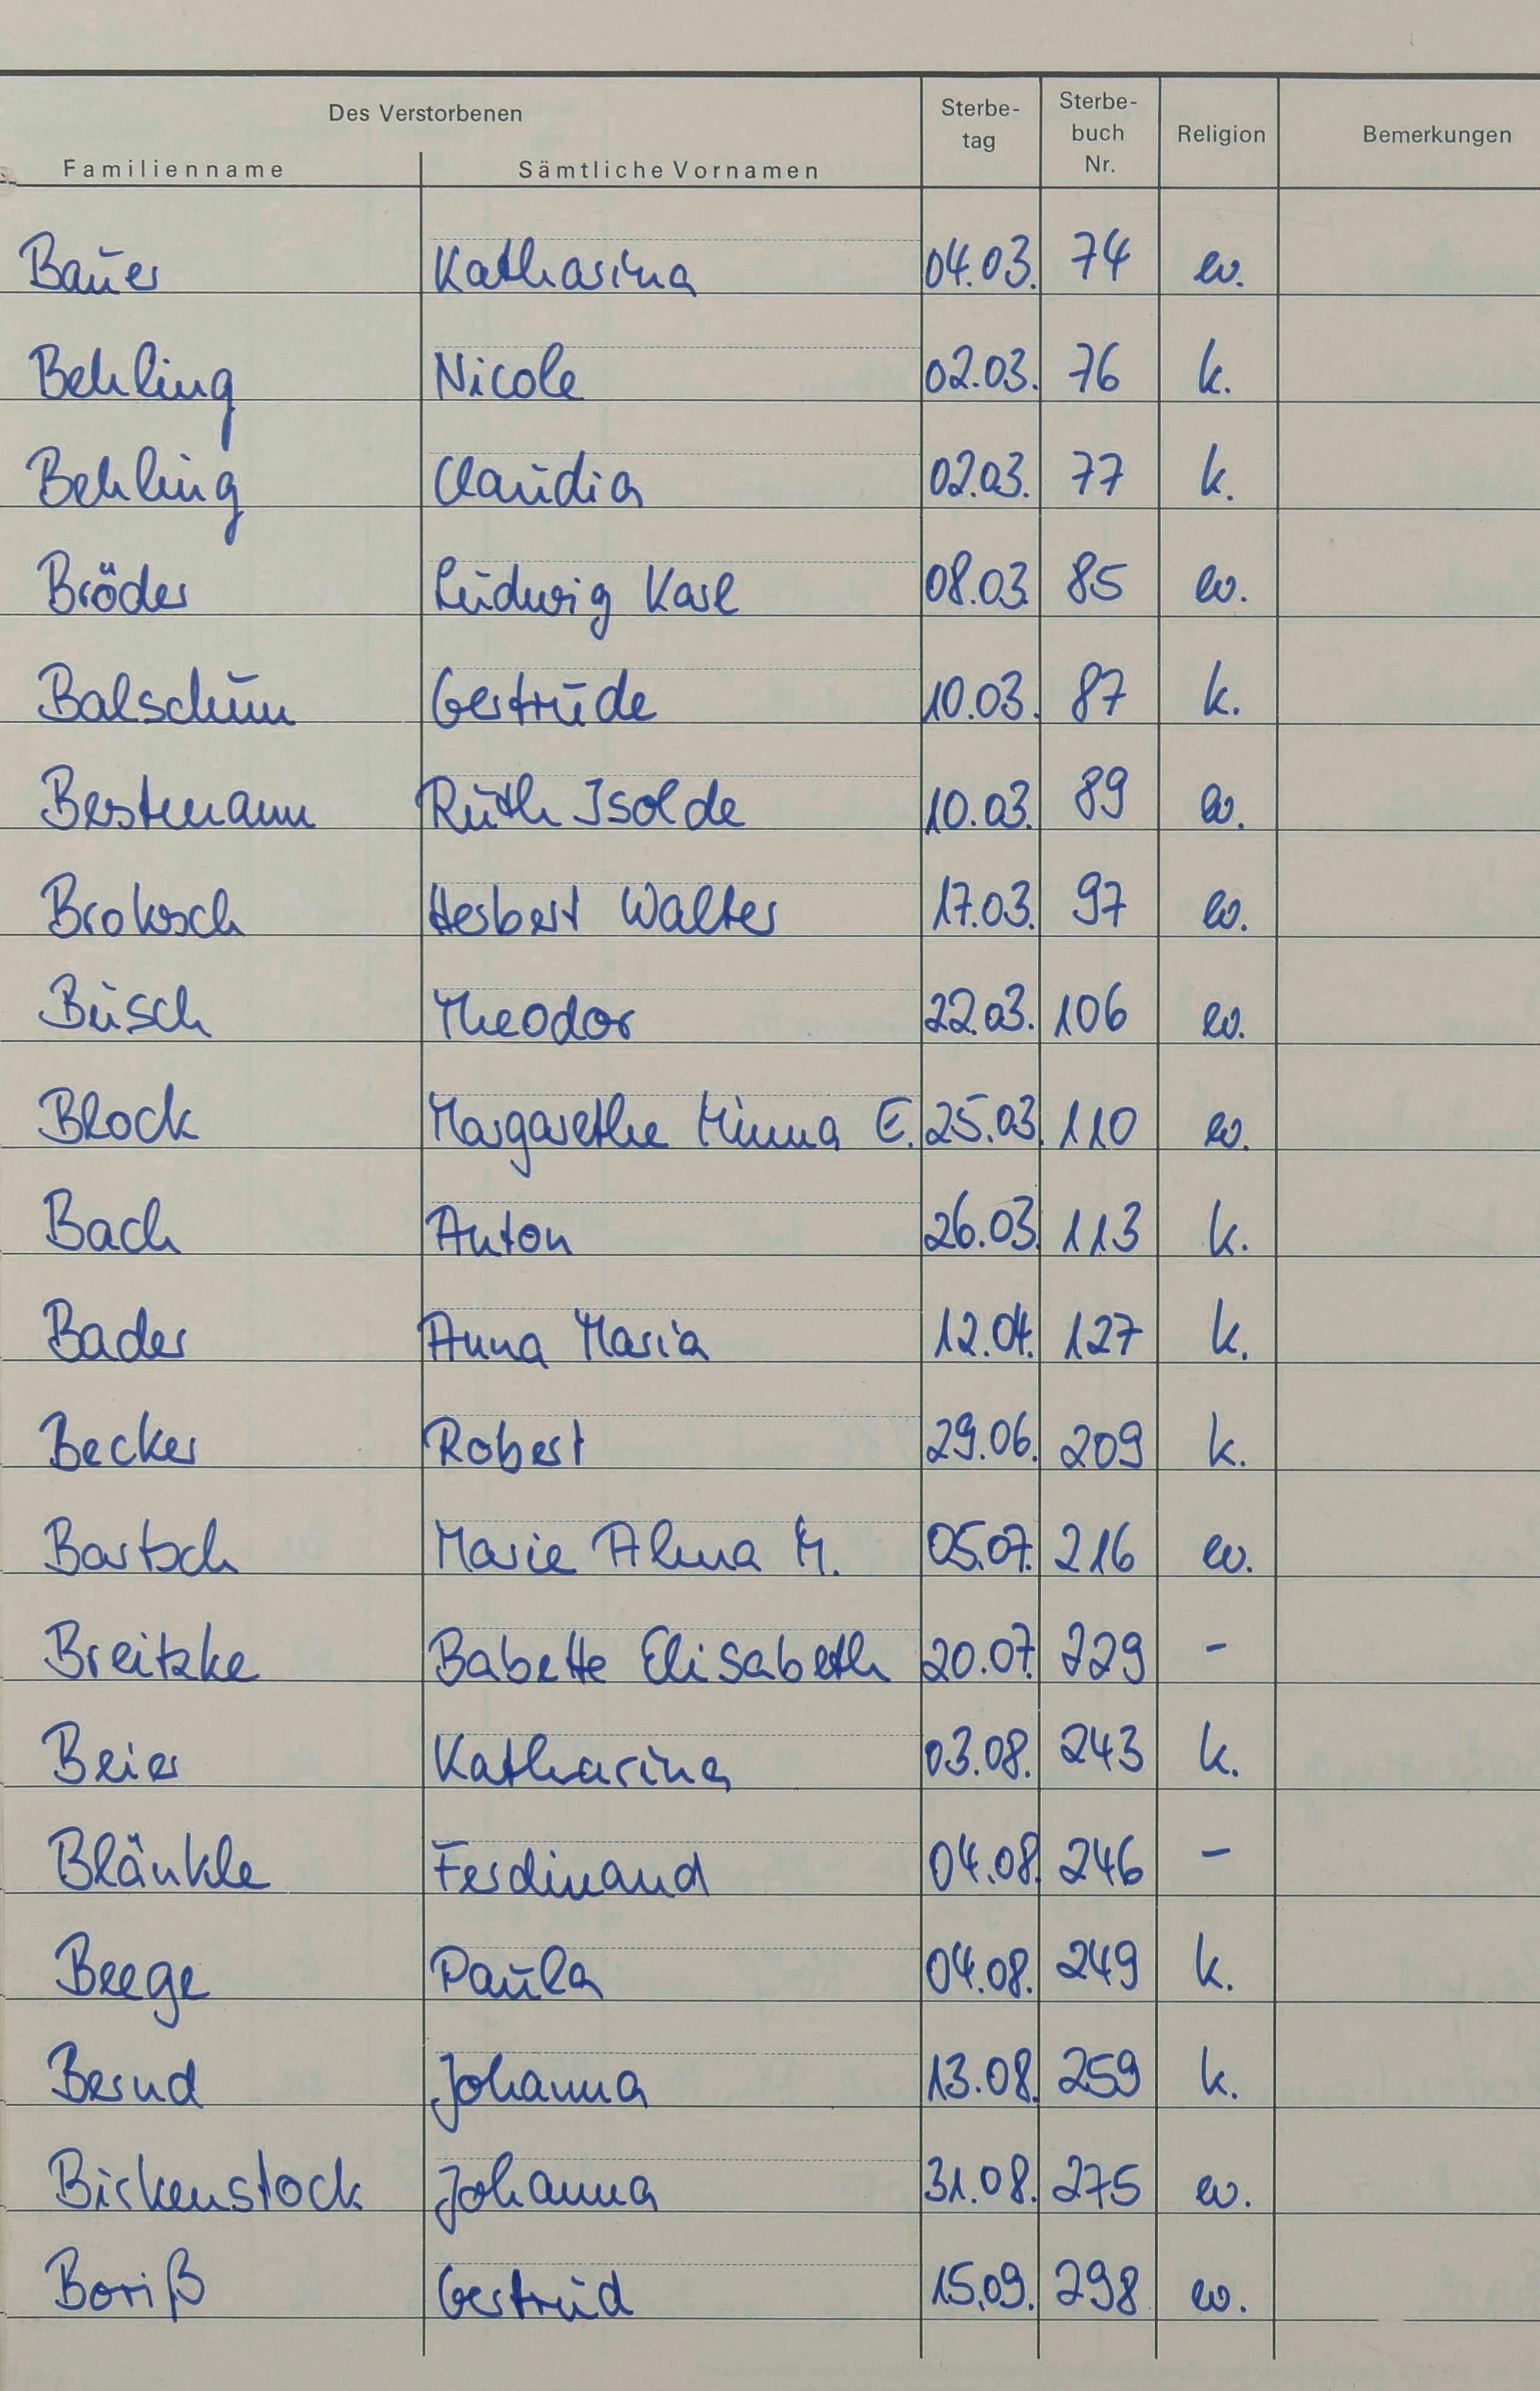 Des Verstorbenen
Familienname Sämtliche Vornamen Sterbe-tag Sterbe-buch Nr. Religion Bemerkungen
Bauer Katharina 04.03. 74 ev.
Behling Nicole 02.03. 76 k.
Behling Claudia 02.03. 77 k.
Bröder Ludwig Karl 08.03. 85 ev.
Balschun Gertrude 10.03. 87 k.
Bestmann Ruth Isolde 10.03. 89 ev.
Broksch Herbert Walter 17.03. 97 ev.
Busch Theodor 22.03. 106 ev.
Block Margarethe Minna E. 25.03. 110 ev.
Bach Anton 26.03. 113 k.
Bader Anna Maria 12.04. 127 k.
Becker Robert 29.06. 209 k.
Bartsch Marie Alma M. 05.07. 216 ev.
Breitzke Babette Elisabeth 20.07. 229 -
Beier Katharina 03.08. 243 k.
Blänkle Ferdinand 04.08. 246 -
Beege Paula 04.08. 249 k.
Bernd Johanna 13.08. 259 k.
Birkenstock Johanna 31.08. 275 ev.
Boriß Gertrud 15.09. 298 ev.